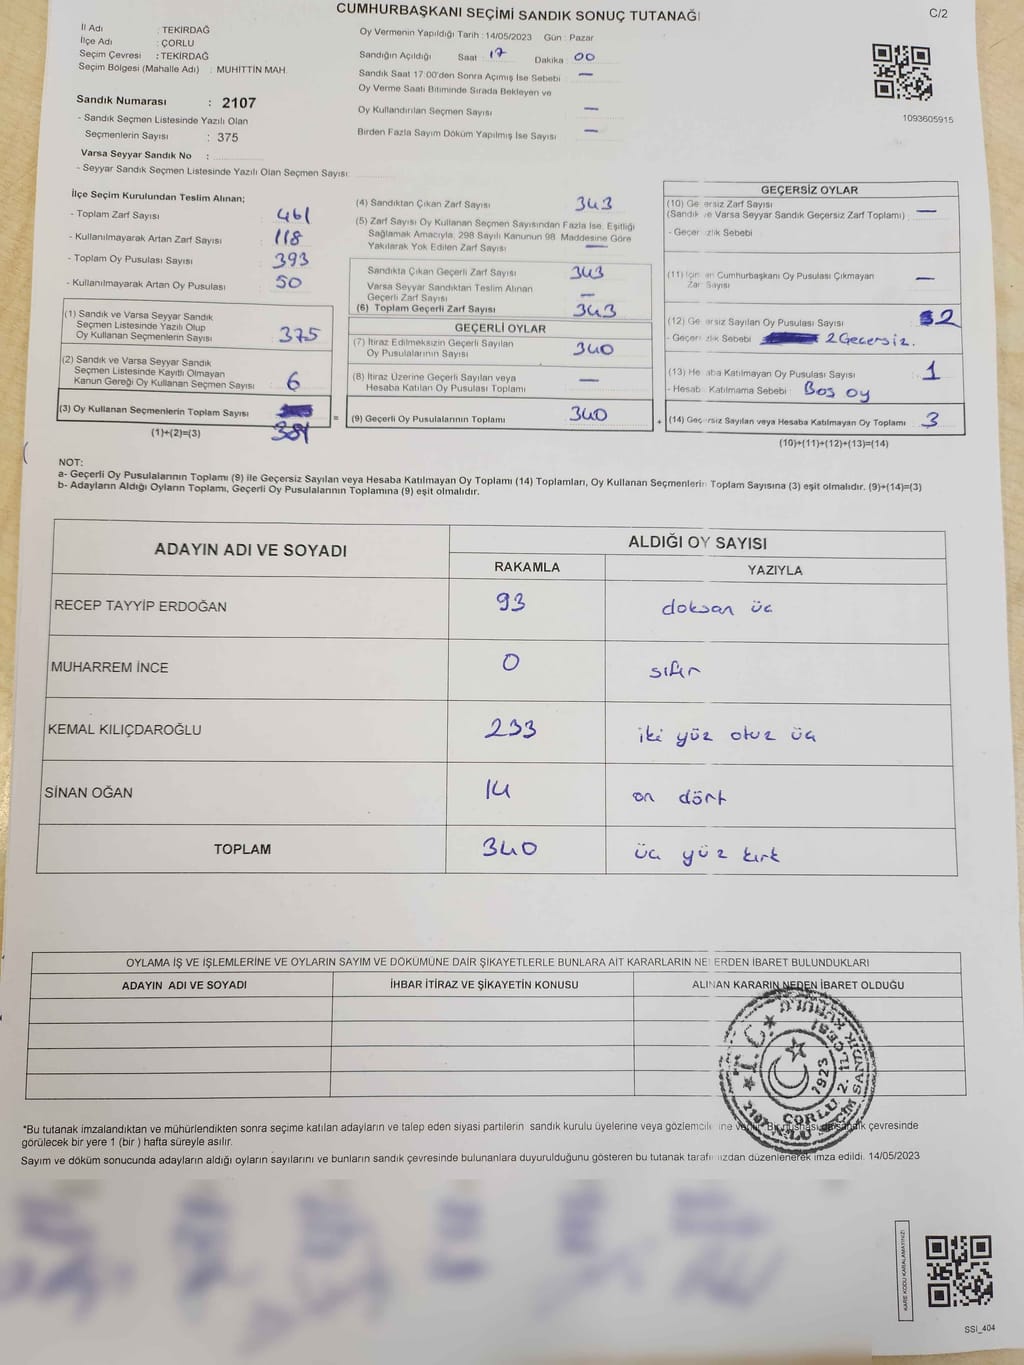 CUMHURBAŞKANI SEÇİMİ SANDIK SONUÇ TUTANAĞI
C/2
İl Adı : TEKİRDAĞ
İlçe Adı : ÇORLU
Seçim Çevresi : TEKİRDAĞ
Seçim Bölgesi (Mahalle Adı) : MUHİTTİN MAH.
Sandık Numarası : 2107
- Sandık Seçmen Listesinde Yazılı Olan
Seçmenlerin Sayısı : 375
Varsa Seyyar Sandık No :
- Seyyar Sandık Seçmen Listesinde Yazılı Olan Seçmen Sayısı:
Oy Vermenin Yapıldığı Tarih : 14/05/2023 Gün : Pazar
Sandığın Açıldığı Saat 17 Dakika 00
Sandık Saat 17:00'den Sonra Açımış İse Sebebi —
Oy Verme Saati Bitiminde Sırada Bekleyen ve
Oy Kullandırılan Seçmen Sayısı —
Birden Fazla Sayım Döküm Yapılmış İse Sayısı —
1093605915
İlçe Seçim Kurulundan Teslim Alınan;
- Toplam Zarf Sayısı 461
- Kullanılmayarak Artan Zarf Sayısı 118
- Toplam Oy Pusulası Sayısı 393
- Kullanılmayarak Artan Oy Pusulası 50
(1) Sandık ve Varsa Seyyar Sandık
Seçmen Listesinde Yazılı Olup
Oy Kullanan Seçmenlerin Sayısı 375
(2) Sandık ve Varsa Seyyar Sandık
Seçmen Listesinde Kayıtlı Olmayan
Kanun Gereği Oy Kullanan Seçmen Sayısı 6
(3) Oy Kullanan Seçmenlerin Toplam Sayısı
(1)+(2)=(3) 381
(4) Sandıktan Çıkan Zarf Sayısı 343
(5) Zarf Sayısı Oy Kullanan Seçmen Sayısından Fazla İse, Eşitliği
Sağlamak Amacıyla, 298 Sayılı Kanunun 98. Maddesine Göre
Yakılarak Yok Edilen Zarf Sayısı —
Sandıkta Çıkan Geçerli Zarf Sayısı 343
Varsa Seyyar Sandıktan Teslim Alınan
Geçerli Zarf Sayısı —
(6) Toplam Geçerli Zarf Sayısı 343
GEÇERLİ OYLAR
(7) İtiraz Edilmeksizin Geçerli Sayılan
Oy Pusulalarının Sayısı 340
(8) İtiraz Üzerine Geçerli Sayılan veya
Hesaba Katılan Oy Pusulası Toplamı —
= (9) Geçerli Oy Pusulalarının Toplamı 340
GEÇERSİZ OYLAR
(10) Ge ersiz Zarf Sayısı
(Sandık ve Varsa Seyyar Sandık Geçersiz Zarf Toplamı) —
- Geçer zlik Sebebi
(11) İçin an Cumhurbaşkanı Oy Pusulası Çıkmayan
Zar Sayısı —
(12) Ge ersiz Sayılan Oy Pusulası Sayısı 2
- Geçer zlik Sebebi 2 Geçersiz.
(13) He aba Katılmayan Oy Pusulası Sayısı 1
- Hesab Katılmama Sebebi Boş oy
+ (14) Geç rsiz Sayılan veya Hesaba Katılmayan Oy Toplamı 3
(10)+(11)+(12)+(13)=(14)
NOT:
a- Geçerli Oy Pusulalarının Toplamı (9) ile Geçersiz Sayılan veya Hesaba Katılmayan Oy Toplamı (14) Toplamları, Oy Kullanan Seçmenlerin Toplam Sayısına (3) eşit olmalıdır. (9)+(14)=(3)
b- Adayların Aldığı Oyların Toplamı, Geçerli Oy Pusulalarının Toplamına (9) eşit olmalıdır.
ADAYIN ADI VE SOYADI ALDIĞI OY SAYISI
RAKAMLA YAZIYLA
RECEP TAYYİP ERDOĞAN 93 doksan üç
MUHARREM İNCE 0 sıfır
KEMAL KILIÇDAROĞLU 233 iki yüz otuz üç
SİNAN OĞAN 14 on dört
TOPLAM 340 üç yüz kırk
OYLAMA İŞ VE İŞLEMLERİNE VE OYLARIN SAYIM VE DÖKÜMÜNE DAİR ŞİKAYETLERLE BUNLARA AİT KARARLARIN NE ERDEN İBARET BULUNDUKLARI
ADAYIN ADI VE SOYADI İHBAR İTİRAZ VE ŞİKAYETİN KONUSU ALINAN KARARIN NEDEN İBARET OLDUĞU
T.C. ÇORLU 2. İLÇESİ 2107 NOLU SEÇİM SANDIK KURULU 1923
*Bu tutanak imzalandıktan ve mühürlendikten sonra seçime katılan adayların ve talep eden siyasi partilerin sandık kurulu üyelerine veya gözlemcile ine verilir. Bir nüshası da sandık çevresinde
görülecek bir yere 1 (bir ) hafta süreyle asılır.
Sayım ve döküm sonucunda adayların aldığı oyların sayılarını ve bunların sandık çevresinde bulunanlara duyurulduğunu gösteren bu tutanak taraf mızdan düzenlenerek imza edildi. 14/05/2023
KARE KODU KARALAMAYINIZ!
SSİ_404